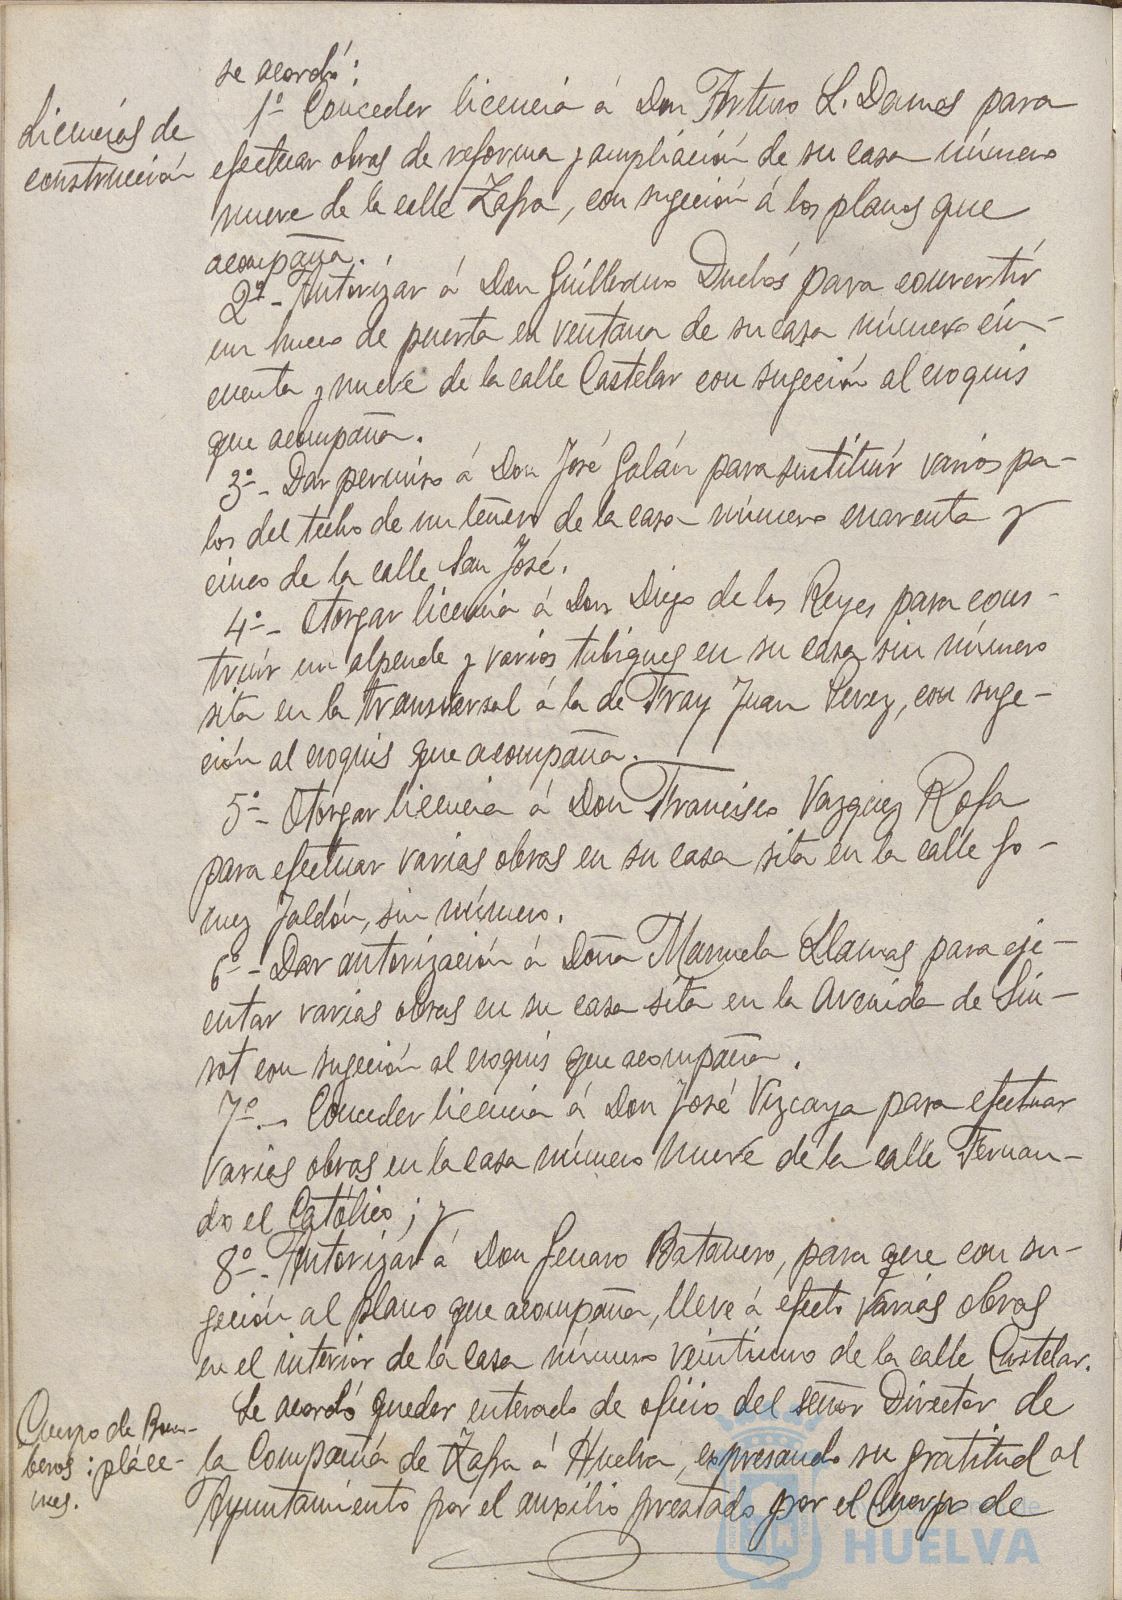 se acordó:
Licencias de
construcción
1º Conceder licencia á Don Arturo L. Damas para
efectuar obras de reforma y ampliación de su casa número
nueve de la calle Zafra, con sugeción á los planos que
acompaña.
2º- Autorizar á Don Guillermo Duclós para convertir
un hueco de puerta en ventana de su casa número cin-
cuenta y nueve de la calle Castelar con sugeción al croquis
que acompaña.
3º- Dar permiso á Don José Galán para sustituir varios pa-
los del techo de un tenero de la casa número cuarenta y
cinco de la calle San José.
4º- Otorgar licencia á Don Diego de los Reyes para cons-
truir un alpende y varios tabiques en su casa sin número
sita en la transversal á la de Fray Juan Perez, con suge-
ción al croquis que acompaña.
5º- Otorgar licencia á Don Francisco Vazquez Rofa
para efectuar varias obras en su casa sita en la calle Go-
mez Jaldón, sin número.
6º- Dar autorización á Doña Manuela Llamas para eje-
cutar varias obras en su casa sita en la Avenida de Sin-
rot con sugeción al croquis que acompaña.
7º.- Conceder licencia á Don José Vizcaya para efectuar
varias obras en la casa número nueve de la calle Fernan-
do el Católico; y
8º- Autorizar á Don Genaro Batanero, para que con su-
geción al plano que acompaña, lleve á efecto varias obras
en el interior de la casa número veintiuno de la calle Castelar.
Cuerpo de Bom-
beros: pláce-
mes.
Se acordó quedar enterado de oficio del señor Director de
la Compañía de Zafra á Huelva, expresando su gratitud al
Ayuntamiento por el auxilio prestado por el Cuerpo de
HUELVA